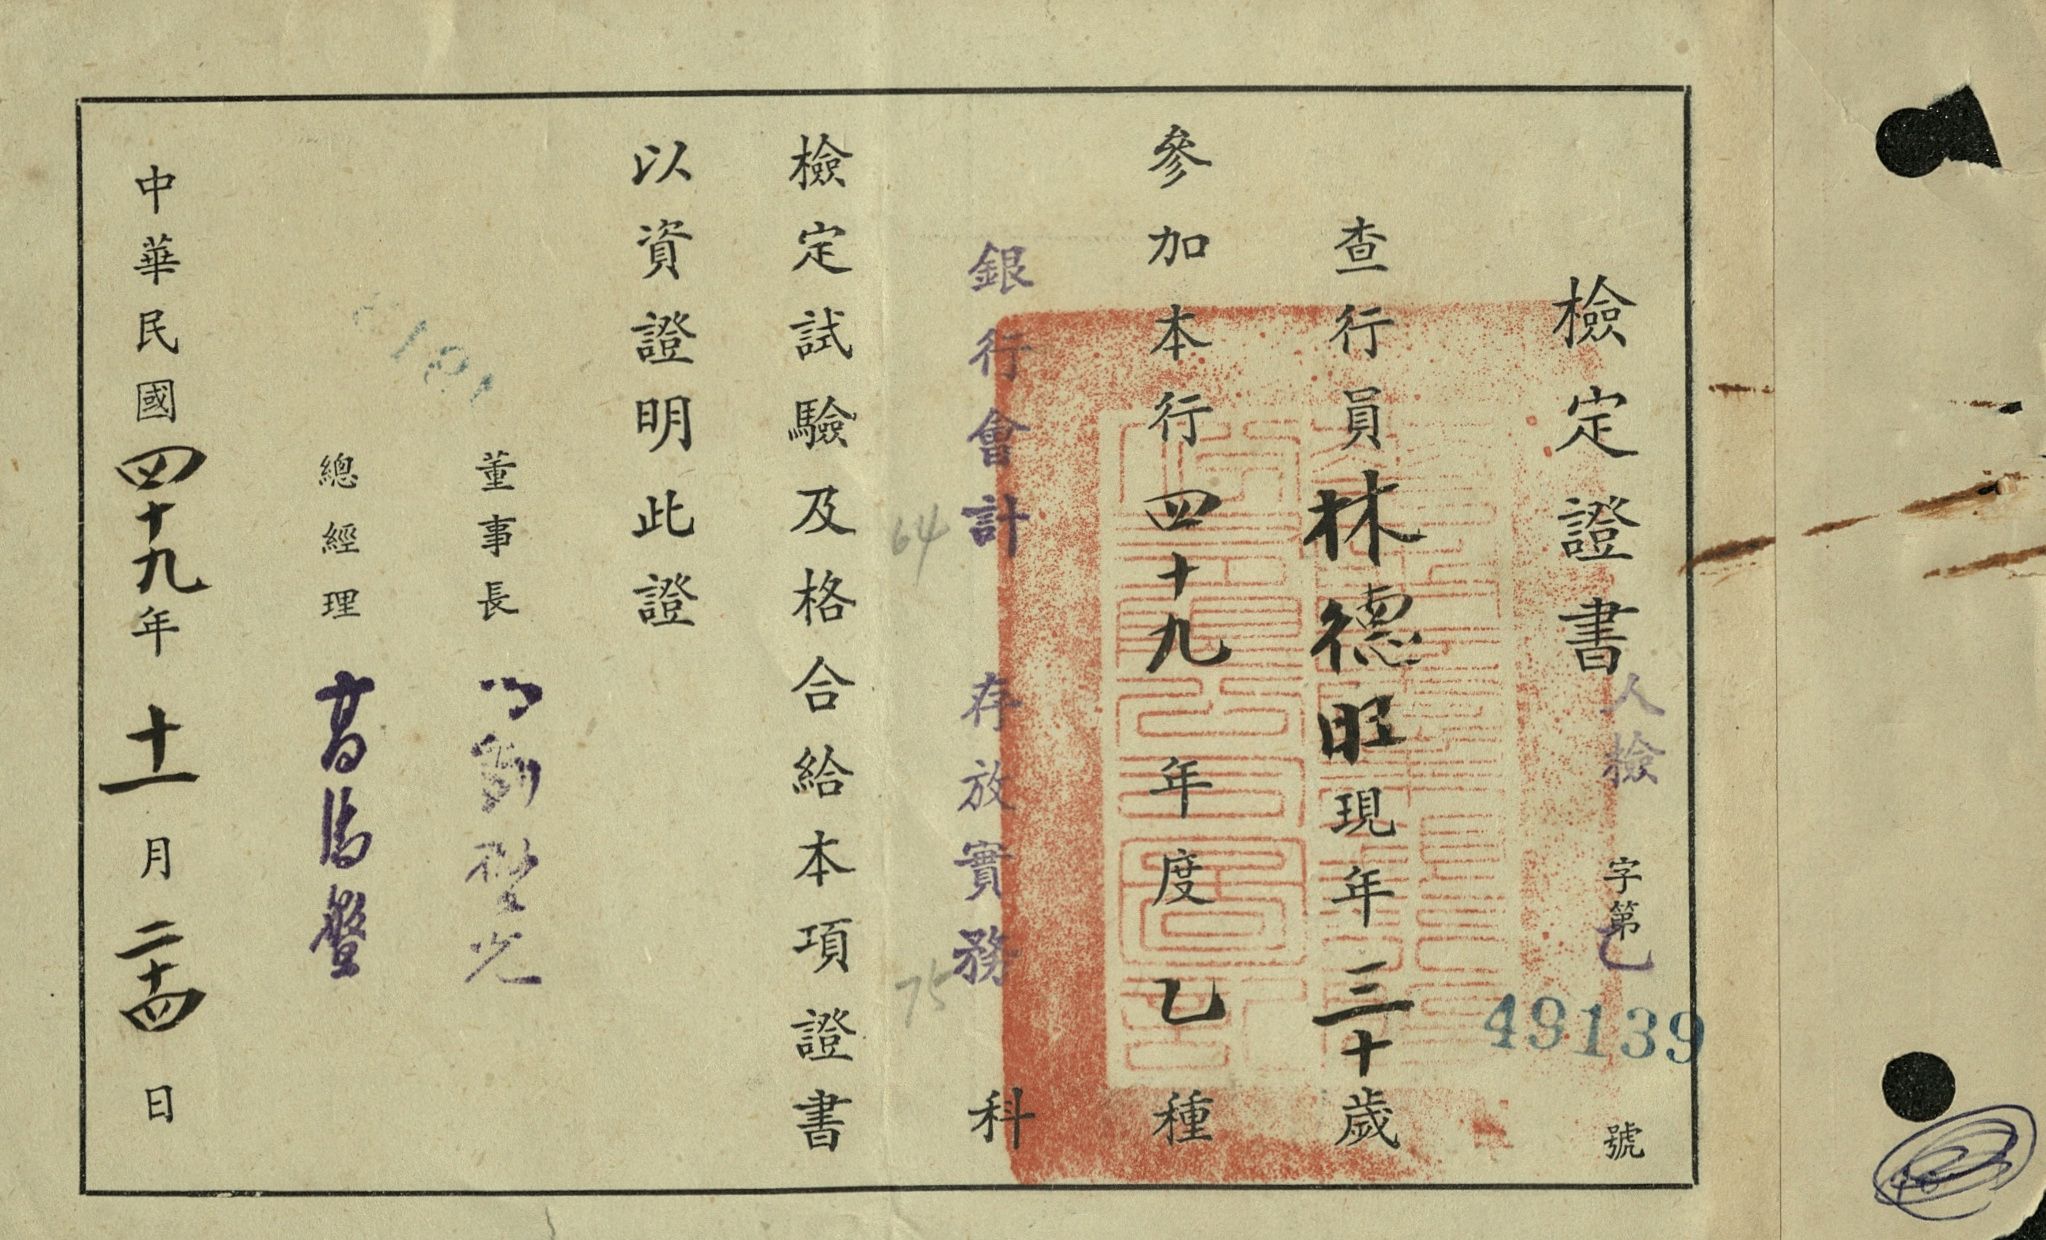 檢定證書
人檢字第乙49139號
查行員林德旺現年三十歲
參加本行四十九年度乙種
銀行會計 存放實務 科
64 75
檢定試驗及格合給本項證書
以資證明此證
董事長
總經理
中華民國四十九年十一月二十四日